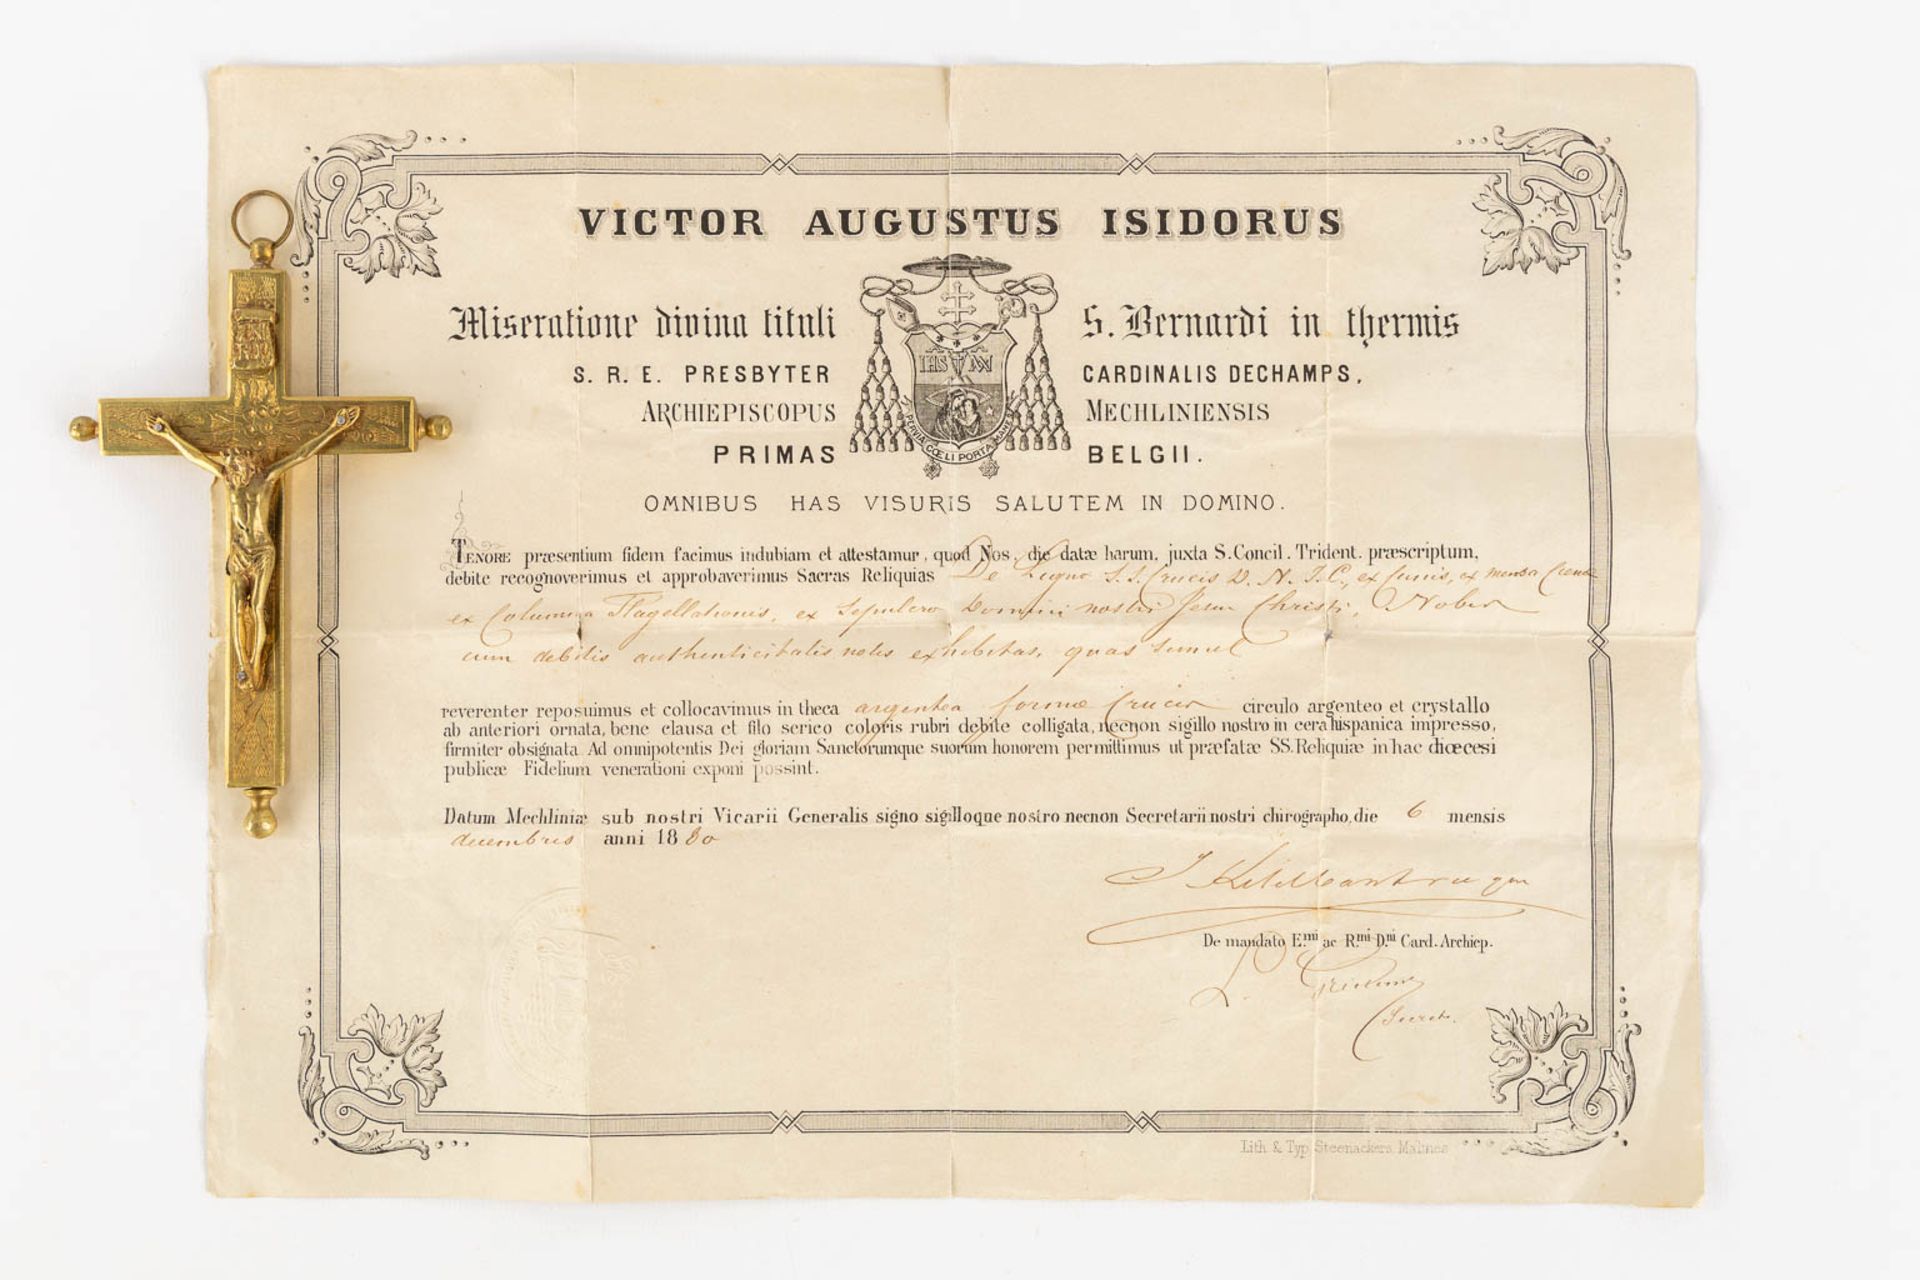 VICTOR AUGUSTUS ISIDORUS
Miseratione divina tituli S. Bernardi in thermis
S. R. E. PRESBYTER CARDINALIS DECHAMPS,
ARCHIEPISCOPUS MECHLINIENSIS
PRIMAS BELGII.
IHS
PERVIA CŒLI PORTA MANES
OMNIBUS HAS VISURIS SALUTEM IN DOMINO.
TENORE præsentium fidem facimus indubiam et attestamur, quod Nos, die datæ harum, juxta S. Concil. Trident. præscriptum,
debite recognoverimus et approbaverimus Sacras Reliquias De Ligno S.S. Crucis D. N. J. C., ex Cunis, ex mensa Cœnæ
ex Columna Flagellationis, ex Sepulcro Domini nostri Jesu Christi, Nobis
cum debitis authenticitatis notis exhibitas, quas simul
reverenter reposuimus et collocavimus in theca argentea formæ Crucis circulo argenteo et crystallo
ab anteriori ornata, bene clausa et filo serico coloris rubri debite colligata, necnon sigillo nostro in cera hispanica impresso,
firmiter obsignata. Ad omnipotentis Dei gloriam Sanctorumque suorum honorem permittimus ut præfatæ SS. Reliquiæ in hac diœcesi
publicæ Fidelium venerationi exponi possint.
Datum Mechliniæ sub nostri Vicarii Generalis signo sigilloque nostro necnon Secretarii nostri chirographo, die 6 mensis
decembris anni 1880
De mandato E.mi ac R.mi D.ni Card. Archiep.
Secret.
Lith & Typ Steenackers Malines